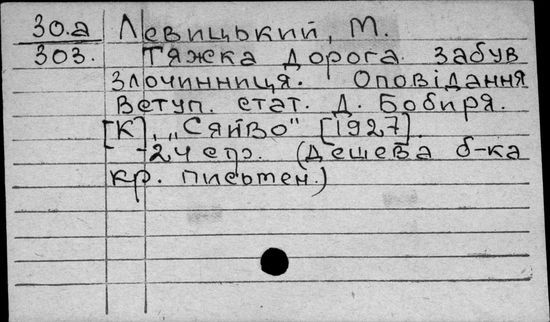 30.а Левицький, М.
303. Тяжка дорога. Забув
злочинниця. Оповідання
Вступ. стат. Д. Бобиря.
[К], „Сяйво" [1927].
24 стр. (Дешева б-ка
кр. письмен.)